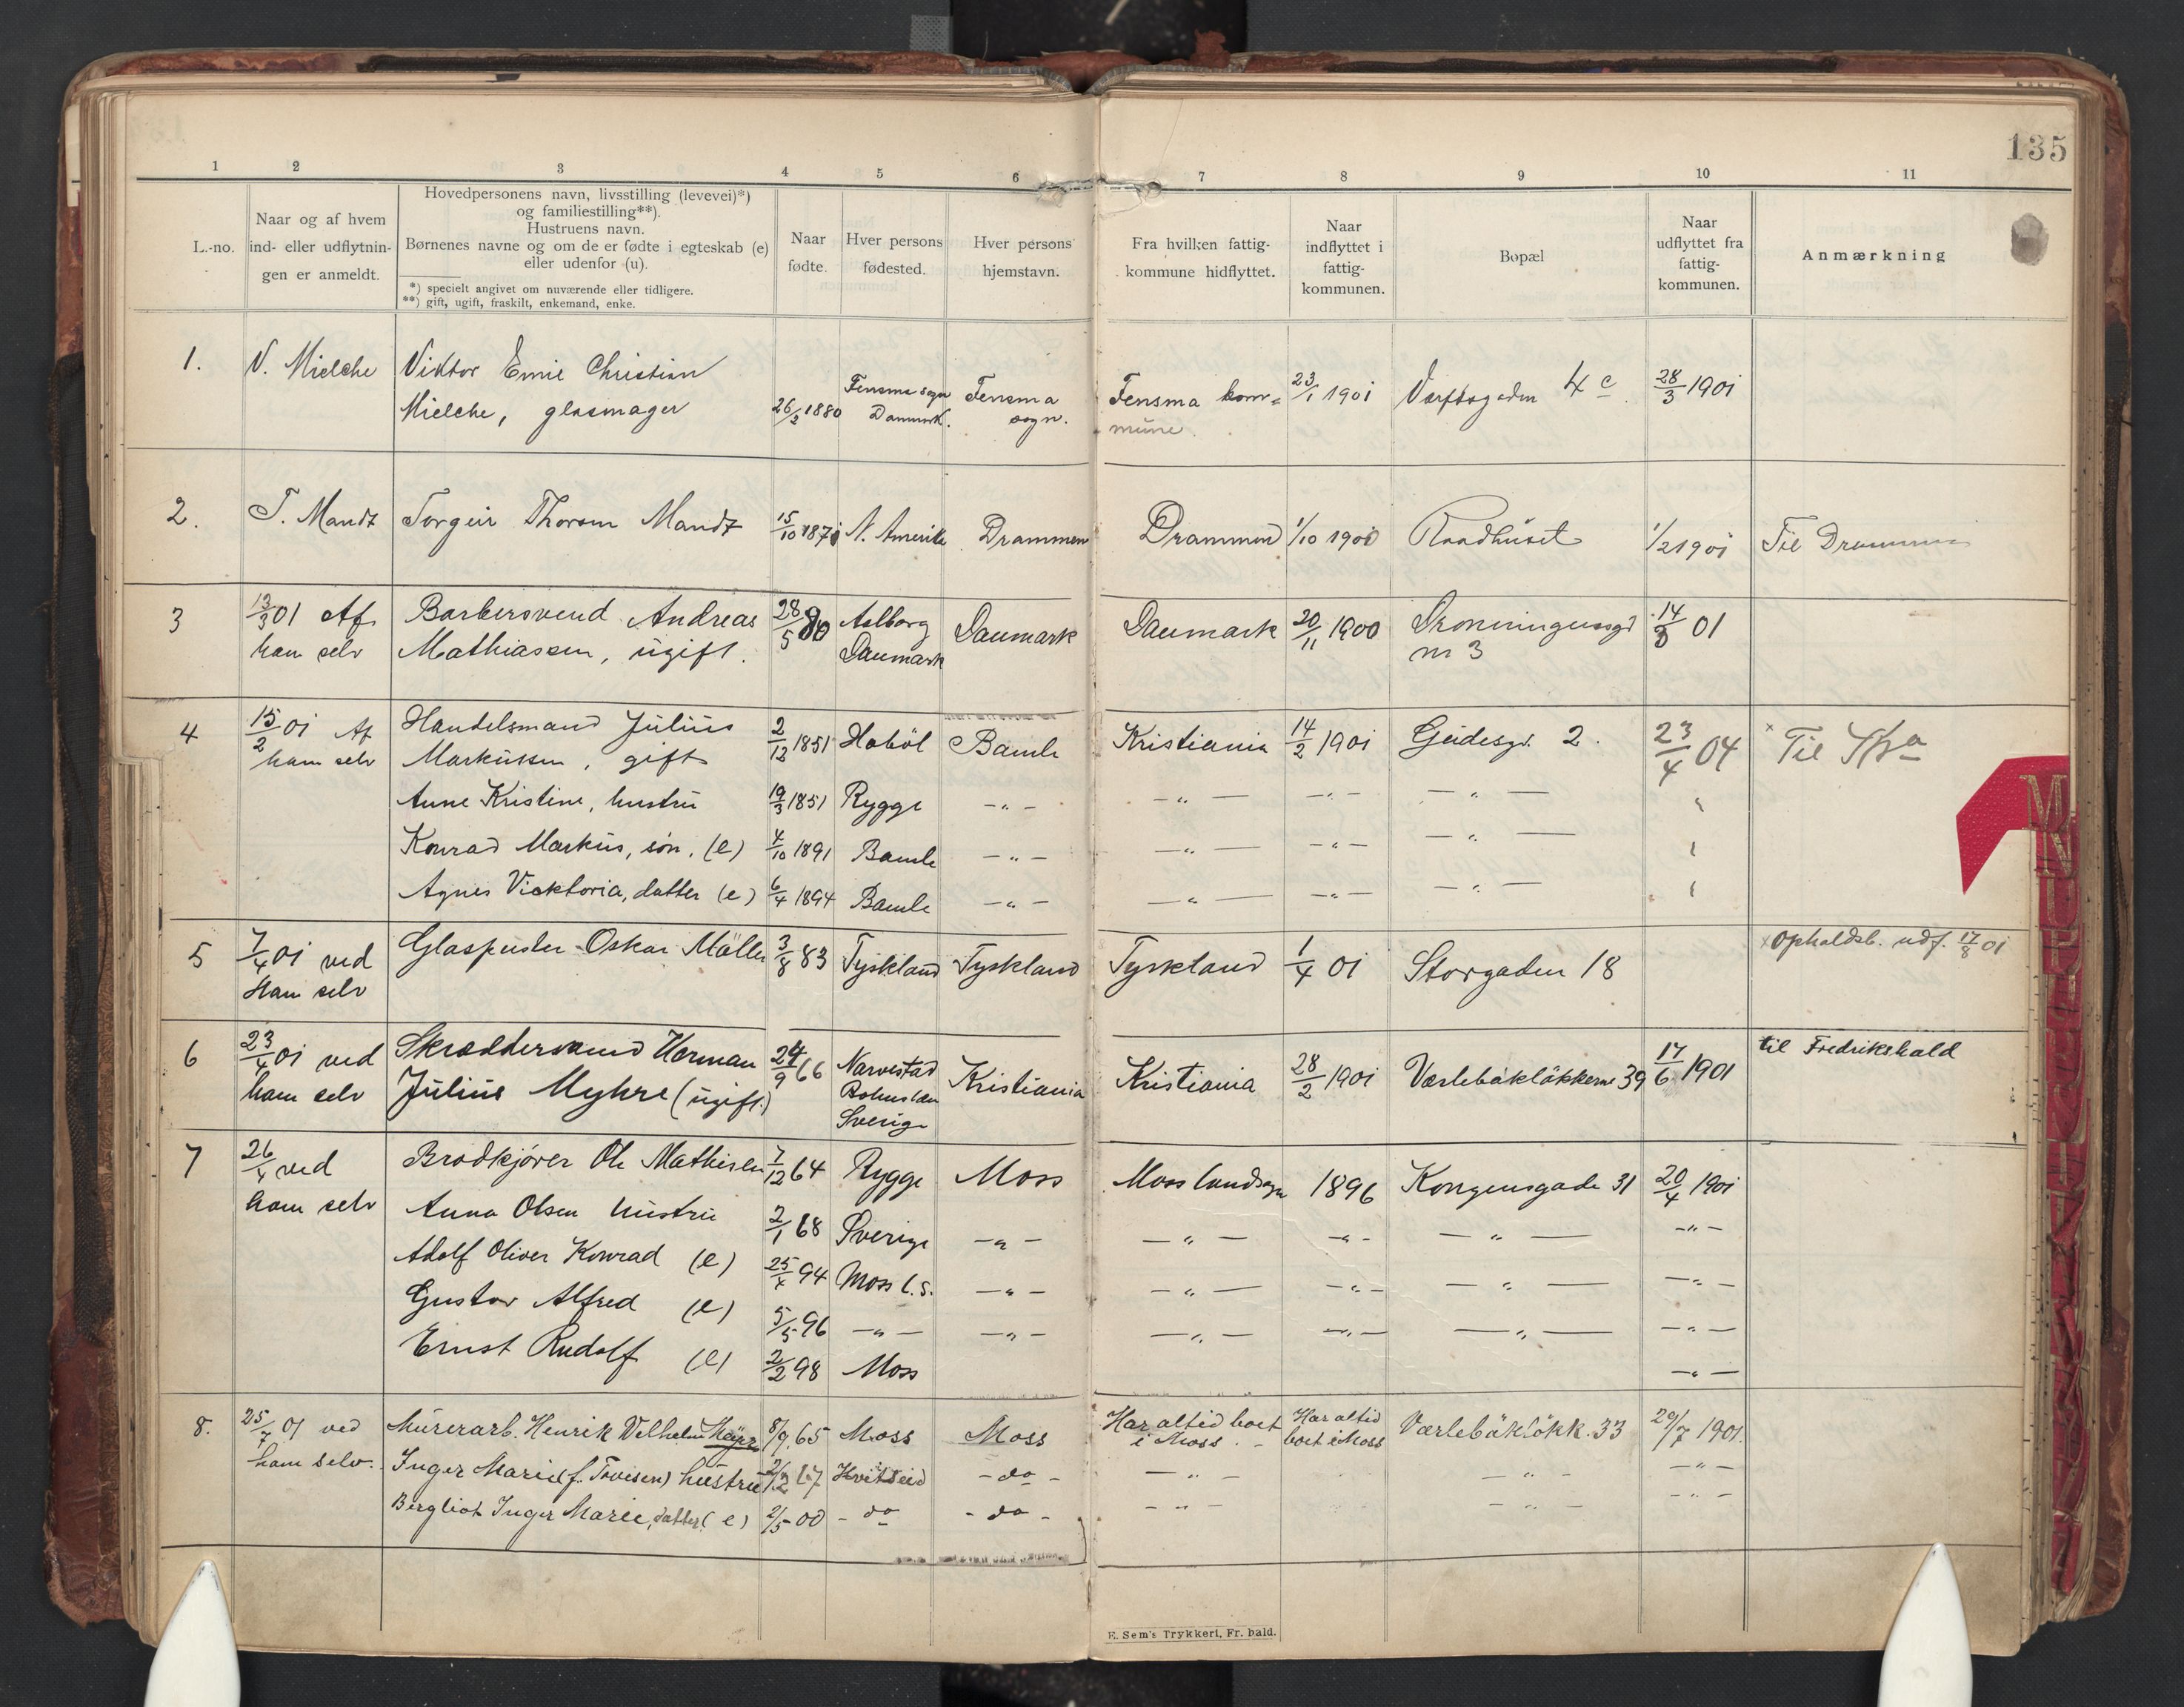 135
1 2 3 4 5 6 7 8 9 10 11
L.-no.
Naar og af hvem
ind- eller udflytnin-
gen er anmeldt.
Hovedpersonens navn, livsstilling (levevei)*)
og familiestilling**).
Hustruens navn.
Børnenes navne og om de er fødte i egteskab (e)
eller udenfor (u).
*) specielt angivet om nuværende eller tidligere.
**) gift, ugift, fraskilt, enkemand, enke.
Naar
fødte.
Hver persons
fødested.
Hver persons
hjemstavn.
Fra hvilken fattig-
kommune hidflyttet.
Naar
indflyttet i
fattig-
kommunen.
Bopæl
Naar
udflyttet fra
fattig-
kommunen.
Anmærkning
1. V. Mielche Viktor Emil Christian
Mielche, glasmager 26/2 1880 Fensma sogn Danmark. Fensma sogn. Fensma kom= mune 23/1 1901 Værftsgaden 4 c. 28/3 1901
2. T. Mandt Torgeir Thorsen Mandt 15/10 1871 N. Amerika Drammen Drammen 1/10 1900 Raadhuset 1/2 1901 Til Drammen
3 13/3 01 Af Barbersvend Andreas 28/5 80 Aalborg Danmark Danmark 20/11 1900 Dronningensgd 14/3 01
ham selv Mathiassen, ugift. Danmark nr 3
4 15/2 01 Af Handelsmand Julius 2/12 1851 Haböl Bamle Kristiania 14/2 1901 Geidesgd. 2. 23/4 04 Til Kra
ham selv Markussen, gift
Anne Kristine, hustru 19/3 1851 Rygge -"- -"- -"- -"- "
Konrad Markus, søn. (e) 4/10 1891 Bamle -"- -"- -"- -"- "
Agnes Vicktoria, datter (e) 6/4 1894 Bamle -"- -"- -"- -"- "
5 7/4 01 ved Glaspuster Oskar Mäller 3/8 83 Tyskland Tyskland Tyskland 1/4 01 Storgaden 18 Opholdsb. udf. 17/8 01
ham selv
6 23/4 01 ved Skræddersvend Herman 24/9 66 Narvestad Kristiania Kristiania 28/2 1901 Værlebäkløkkern 39 17/6 1901 til Fredrikshald
ham selv Julius Myhre (ugift.) Bohuslæn
Sverige
7 26/4 ved Brødkjører Ole Mathisen 7/12 64 Rygge Moss Moss landsogn 1896 Kongensgade 31 20/4 1901
ham selv Anna Olsen hustru 2/1 68 Sverige -"- -"- -"- -"- -"-
Adolf Oliver Konrad (e) 25/4 94 Moss l.S. -"- -"- -"- -"- -"-
Gustav Alfred (e) 5/5 96 -"- -"- -"- -"- -"- -"-
Ernst Rudolf (e) 2/2 98 Moss -"-
8. 25/7 01 ved Murerarb. Henrik Velhelm Meyer 8/9 65 Moss Moss Har altid boet i Moss. Har altid boet i Moss Værlebäkløkk. 33 29/7 1901.
ham selv. Inger Marie (f. ) hustru Hvitseid -do- -"- -"- -"-
Bergliot Inger Marie, datter (e) 2/5 00 -do -do- -"- -"- -"-
E. Sem's Trykkeri, Fr. hald.